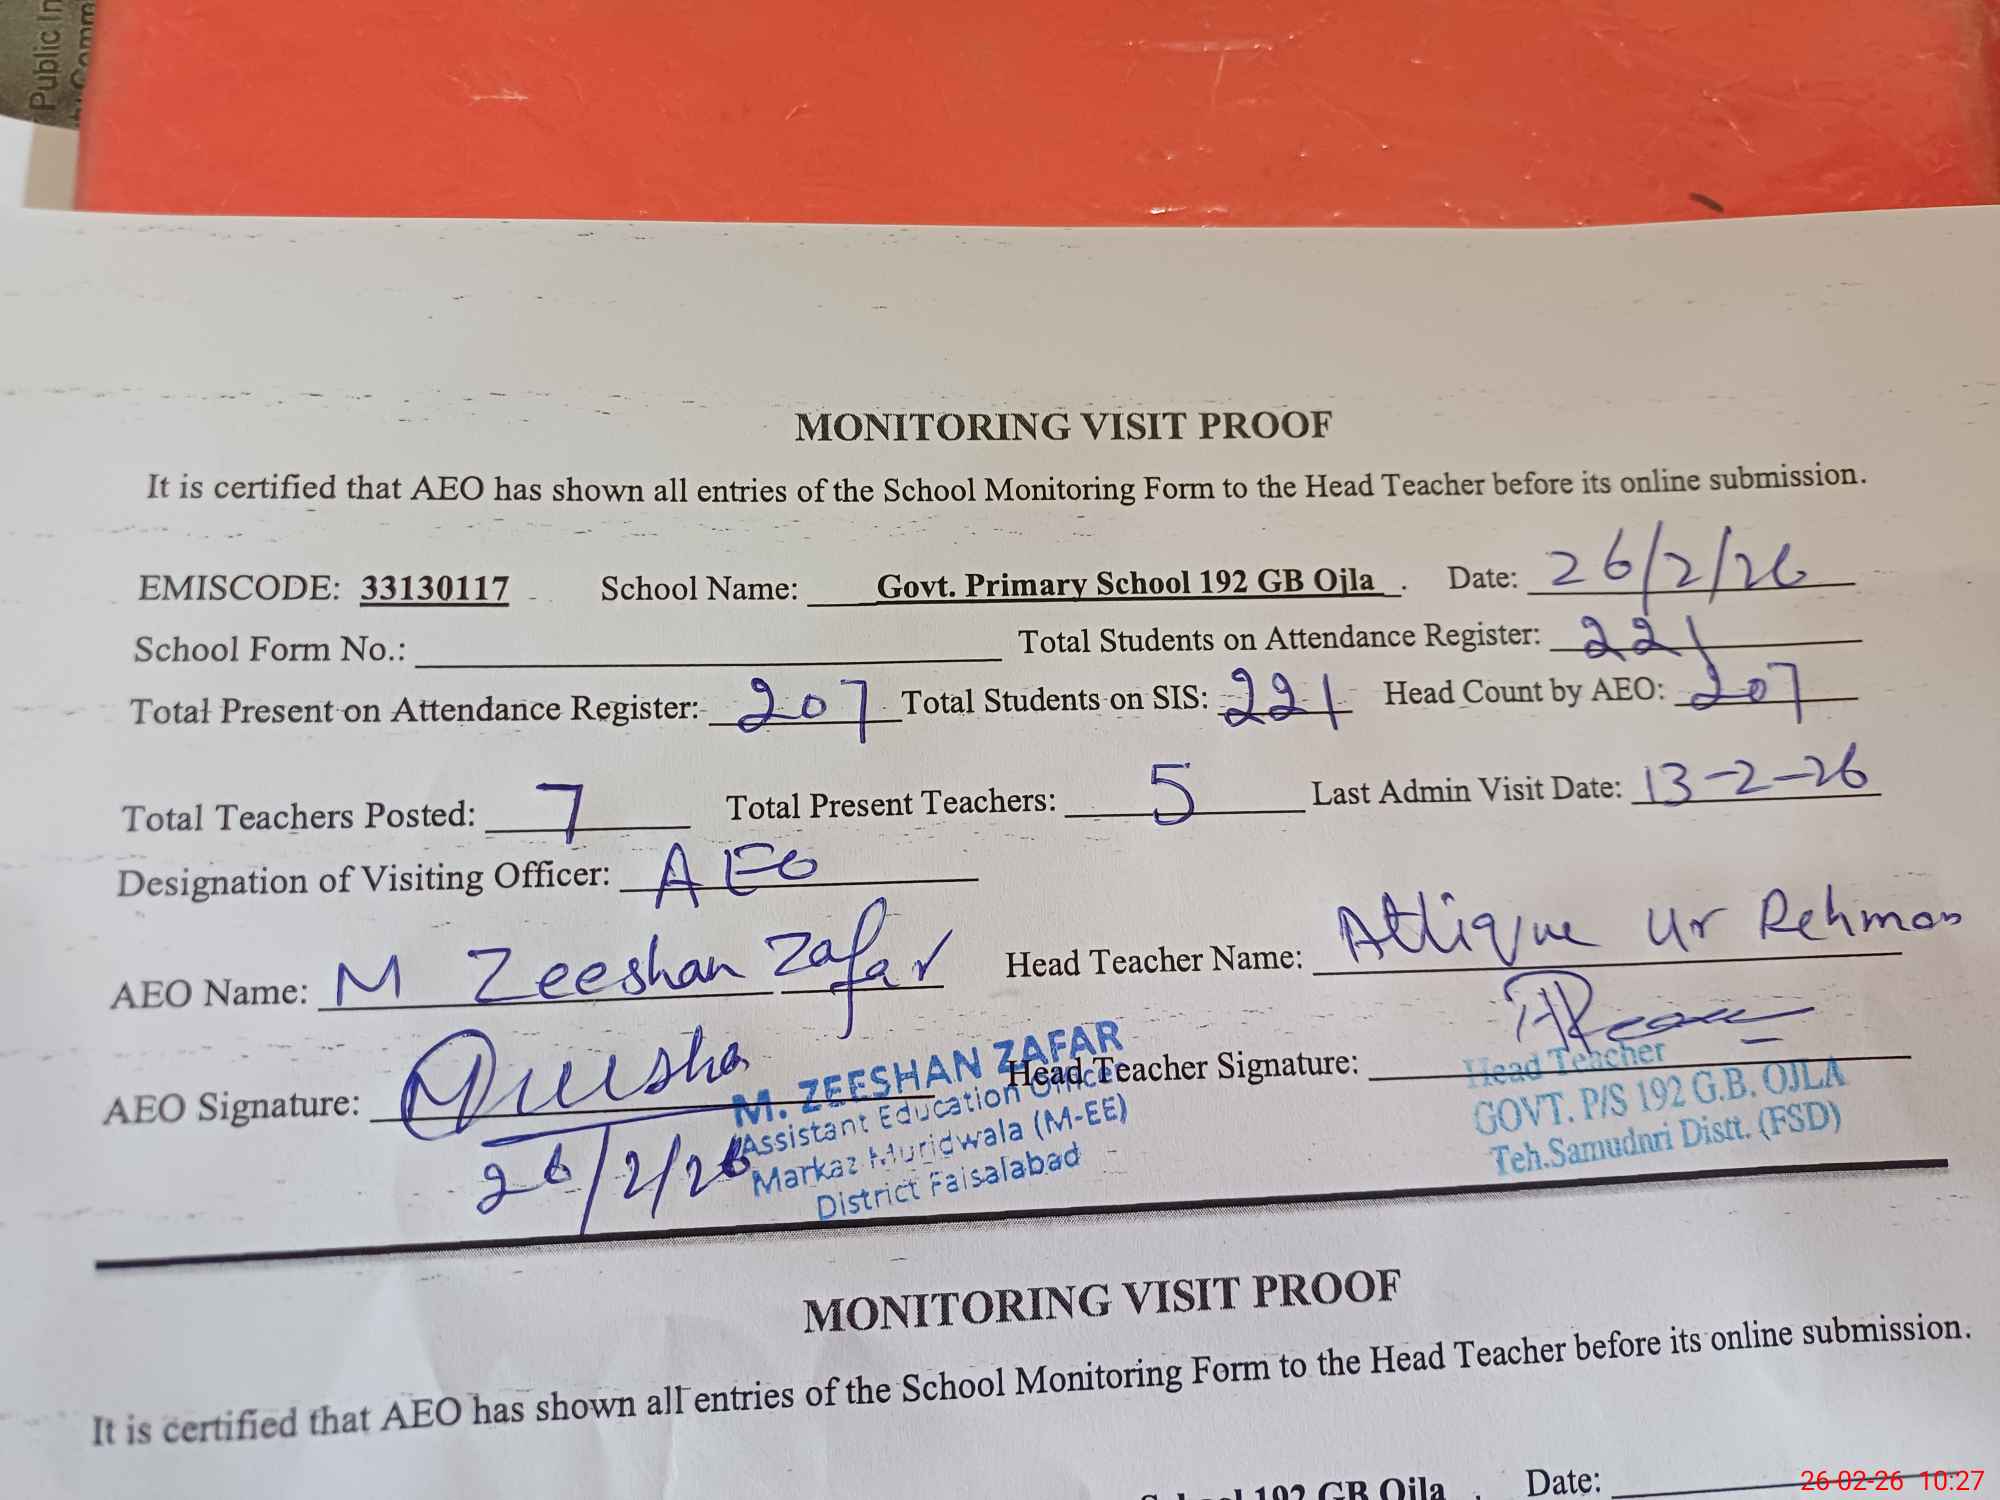 Public In
Comm
MONITORING VISIT PROOF
It is certified that AEO has shown all entries of the School Monitoring Form to the Head Teacher before its online submission.
EMISCODE: 33130117 School Name: Govt. Primary School 192 GB Ojla . Date: 26/2/26
School Form No.: Total Students on Attendance Register: 221
Total Present on Attendance Register: 207 Total Students on SIS: 221 Head Count by AEO: 207
Total Teachers Posted: 7 Total Present Teachers: 5 Last Admin Visit Date: 13-2-26
Designation of Visiting Officer: AEO
AEO Name: M Zeeshan Zafar Head Teacher Name: Attique Ur Rehman
AEO Signature: Head Teacher Signature:
26/2/26
M. ZEESHAN ZAFAR
Assistant Education Officer
Markaz Muridwala (M-EE)
District Faisalabad
Head Teacher
GOVT. P/S 192 G.B. OJLA
Teh.Samudnri Distt. (FSD)
MONITORING VISIT PROOF
It is certified that AEO has shown all entries of the School Monitoring Form to the Head Teacher before its online submission.
192 GB Ojla . Date:
26-02-26 10:27